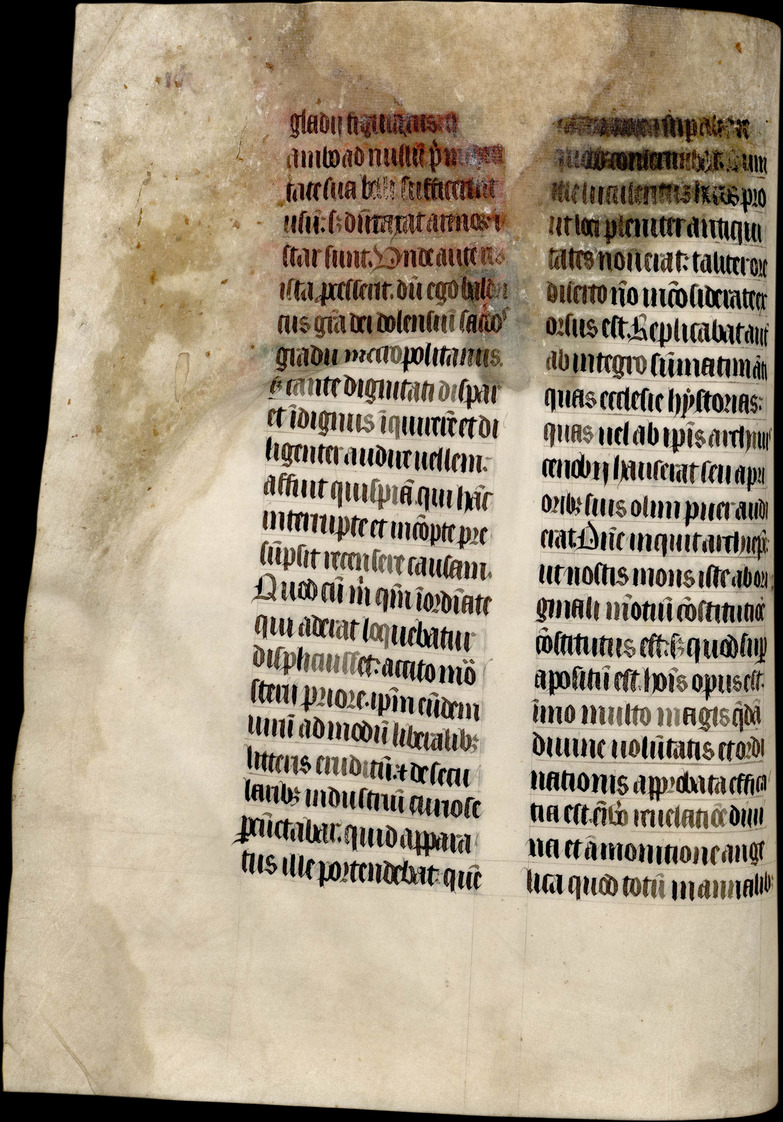 gladii figuratiis
ambo ad nullū p̄
tate sua belli sufficerent
usū: sꝫ dūtaxat armoꝝ ī
star sunt. Unde aute nȝ
ista ꝓcesserit. dū ego baldri
cus gr̄a dei dolensiū sacdo
gradū metropolitanus.
ꝫ tante dignitati dispar
et īdignus īquirerē et di
ligenter audire uellem:
affuit quispiā qui hāc
interrupte et incōpte pre
sūpsit recensere causam.
Quod cū m̄ qm̄ īordīate
qui aderat loquebatur
displicuisset: accito mō
sterii priore. ipm̄ eūdem
uirū ad modū liberalibꝫ
litteris eruditū. ⁊ de secu
laribꝫ industriū curiose
ꝑcūctabar: quid appara
tus ille portendebat: que
ille luculentus pro
ut loci pleniter antiqui
tates nouerat: taliter ore
diserto nō incōsiderate ex
orsus est. Replicabat aut
ab integro sūmatim āti
quas ecclesie hystorias:
quas uel ab ip̄is archiuis
cenobii hauserat seu a pri
oribꝫ suis olim puer audi
erat. Dn̄e inquit archiep̄e:
ut nostis mons iste ab ori
ginali motiuī cōstitutiōe
cōstitutus est: sꝫ quod sup
apositū est. hoīs opus est.
īmo multo magis q̄dā
diuine uolūtatis et ordi
nationis approbata effica
tia est. eīo reuelatiōe diui
na et āmonitione ange
lica quod totū in annalibꝫ